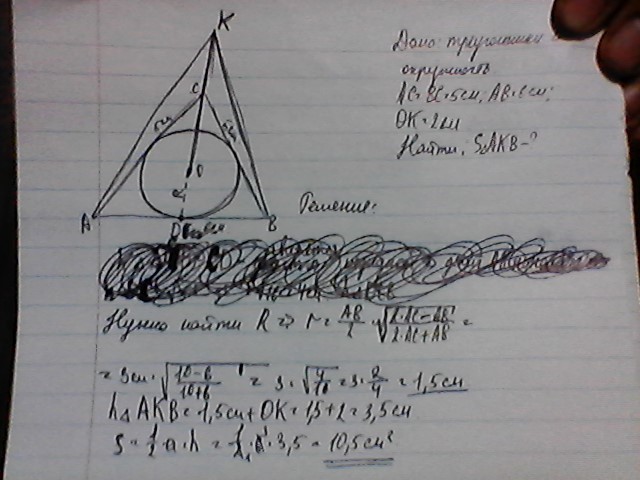 K
Дано: треугольник
окружность
AC=BC=5см; AB=6см;
OK=2см
Найти: SΔAKB-?
C
5см
5см
O
A
D
B
Решение:
Нужно найти R ⇒ r = AB/2 · √(2·AC-AB / 2·AC+AB) =
= 3см · √(10-6 / 10+6) = 3 · √(4/16) = 3 · 2/4 = 1,5см
hΔAKB = 1,5см + OK = 1,5+2 = 3,5см
S = 1/2 · a · h = 1/2 · 6 · 3,5 = 10,5см²